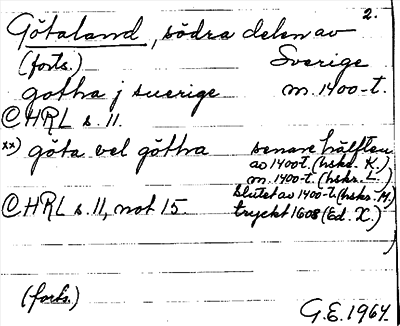 2.
Götaland, södra delen av
(forts.) Sverige
gotha j suerige m. 1400-t.
© HRL s. 11.
xx) göta vel göthra senare hälften
av 1400t. (hskr. K.)
m. 1400-t. (hskr. L.)
slutet av 1400-t. (hskr. M.)
© HRL s. 11, not 15. tryckt 1608 (Ed. X.)
(forts.)
G.E. 1964.